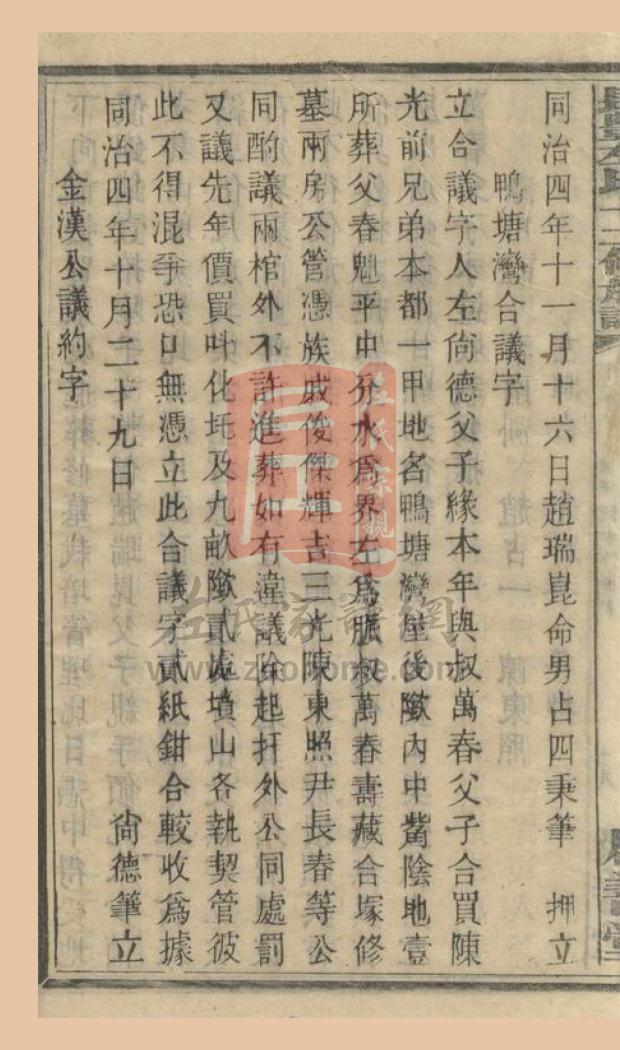 同治四年十一月十六日趙瑞崑命男占四秉筆 押立
鴨塘灣合議字
立合議字人左尙德父子緣本年與叔萬春父子合買陳
光前兄弟本都一甲地名鴨塘灣屋後墩內中嘴陰地壹
所葬父春魁平中分水爲界左爲脤叔萬春壽藏合塚修
墓兩房公管憑族戚俊傑輝吉三光陳東照尹長春等公
同酌議兩棺外不許進葬如有違議除起扦外公同處罰
又議先年價買叫化坵及九畝墩貳處墳山各執契管彼
此不得混爭恐口無憑立此合議字貳紙鉗合較收爲據
同治四年十月二十九日 尙德筆立
金漢公議約字
左氏 修族譜
善堂
左氏宗親
莊氏家譜網
www.zhohome.com